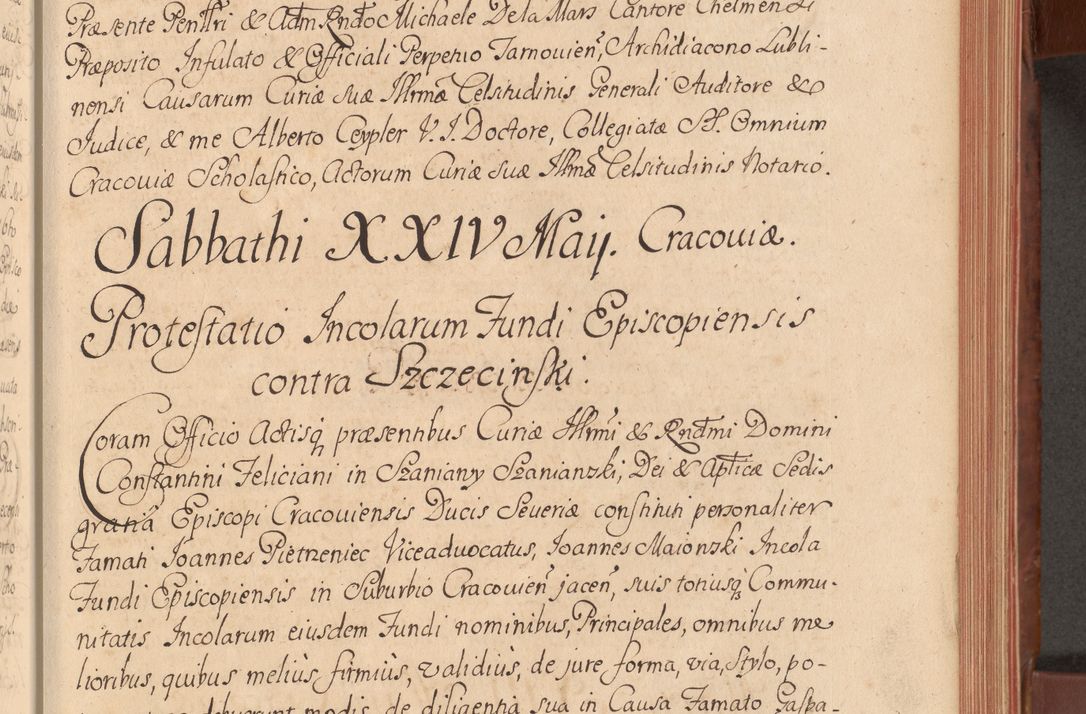 Præsente Penſſri & Adm Rndo Michaele De la Mars Cantore Chelmen &
Præposito Infulato & Officiali Perpetuo Tarnouien, Archidiacono Lubli-
nensi Causarum Curiæ suæ Illrmæ Celsitudinis Generali Auditore &
Judice, & me Alberto Ceypler V. J. Doctore, Collegiatæ SS. Omnium
Cracouiæ Scholastico, Actorum Curiæ suæ Illmæ Celsitudinis Notario.
Sabbathi XXIV Maij. Cracouiæ.
Protestatio Incolarum Fundi Episcopiensis
contra Szczecinſki.
Coram Officio Actisq præsentibus Curiæ Illrmi & Rndmi Domini
Constantini Feliciani in Szaniawy Szanianzki, Dei & Aplicæ Sedis
gratia Episcopi Cracouiensis Ducis Seueriæ constituti personaliter
Famati Joannes Pietrzeniec Viceaduocatus, Joannes Maionzki Incola
Fundi Episcopiensis in Suburbio Cracouien jacen, suis totiusq Commu-
nitatis Incolarum eiusdem Fundi nominibus, Principales, omnibus me
lioribus, quibus meliùs firmiùs, validiùs, de jure forma, via, stylo, po-
debuerunt modis, de diligentia sua in Causa Famato Gaspa-